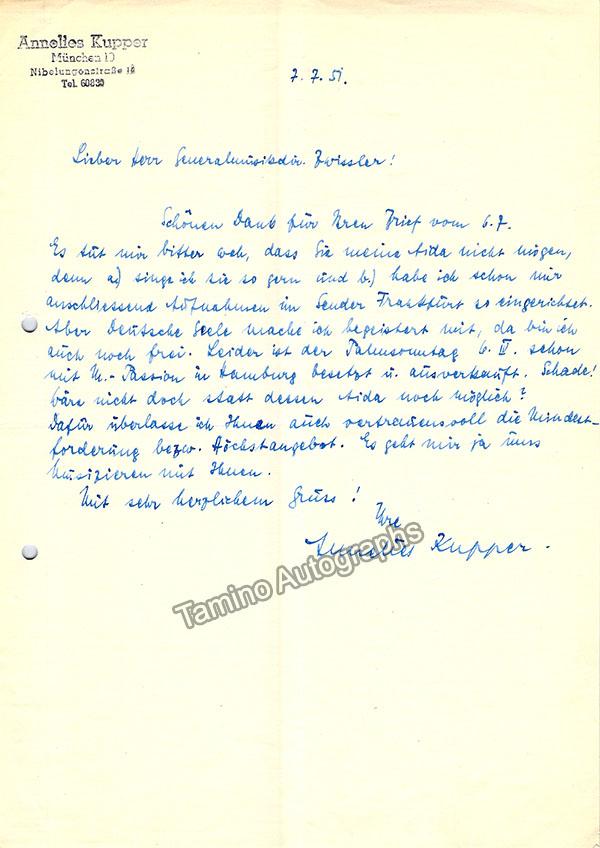 Annelies Kupper
München 19
Nibelungenstraße 18
Tel. 60830
7.7.51.
Lieber Herr Generalmusikdir. Zwissler!
Schönen Dank für Ihren Brief vom 6.7.
Es tut mir bitter weh, dass Sie meine Aida nicht mögen,
denn a.) singe ich sie so gern und b.) habe ich schon mir
anschliessend Aufnahmen im Sender Frankfurt so eingerichtet.
Aber Deutsche Seele mache ich begeistert mit, da bin ich
auch noch frei. Leider ist der Palmsonntag 6. IV. schon
mit M.-Passion in Hamburg besetzt u. ausverkauft. Schade!
Wäre nicht doch statt dessen Aida noch möglich?
Dafür überlasse ich Ihnen auch vertrauensvoll die Mindest-
forderung bezw. Höchstangebot. Es geht mir ja ums
Musizieren mit Ihnen.
Mit sehr herzlichem Gruss!
Ihre
Annelies Kupper.
Tamino Autographs